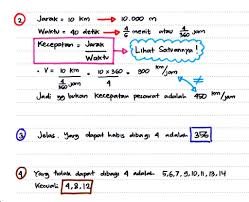 ② Jarak = 10 km → 10.000 m
Waktu = 40 detik → menit atau jam
Kecepatan = Jarak / Waktu Lihat Satuannya!
• V = 10 km / jam = 10 x 360 / 4 = 900 km/jam
≠
Jadi yg bukan kecepatan pesawat adalah 450 km/jam
③ Jelas. Yang dapat habis dibagi 4 adalah 356
④ Yang tidak dapat dibagi 4 adalah 5,6,7,9,10,11,13,14
Kecuali 4,8,12